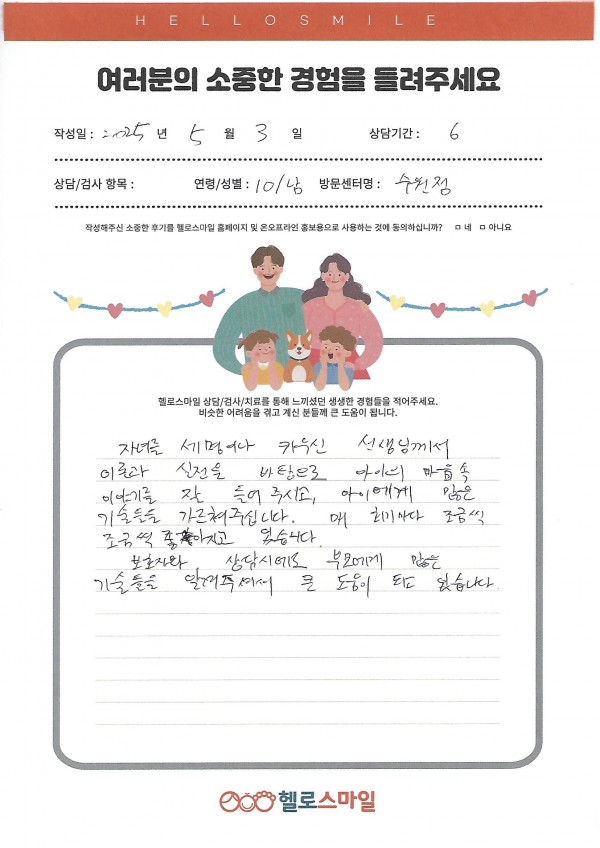 HELLOSMILE
여러분의 소중한 경험을 들려주세요
작성일 : 2025 년 5 월 3 일 상담기간 : 6
상담/검사 항목 : 연령/성별 : 10/남 방문센터명 : 수원점
작성해주신 소중한 후기를 헬로스마일 홈페이지 및 온오프라인 홍보용으로 사용하는 것에 동의하십니까? ㅁ 네 ㅁ 아니요
헬로스마일 상담/검사/치료를 통해 느끼셨던 생생한 경험들을 적어주세요.
비슷한 어려움을 겪고 계신 분들께 큰 도움이 됩니다.
자녀를 세명이나 키우신 선생님께서
이론과 실전을 바탕으로 아이의 마음속
이야기를 잘 들어 주시고, 아이에게 많은
기술들을 가르쳐주십니다. 매 회기마다 조금씩
조금씩 좋아지고 있습니다.
보호자와 상담시에도 부모에게 많은
기술들을 알려주셔서 큰 도움이 되고 있습니다.
헬로스마일